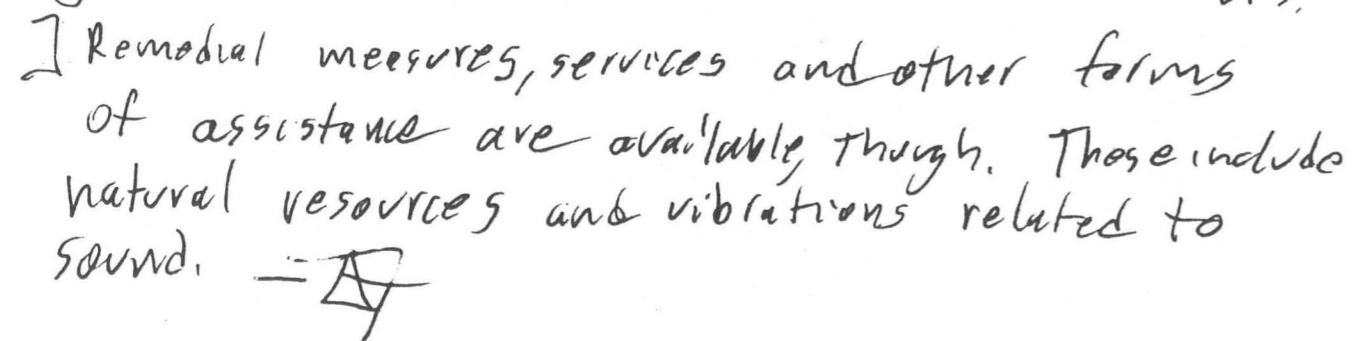 ] Remedial measures, services and other forms
of assistance are available, though. These include
natural resources and vibrations related to
sound.